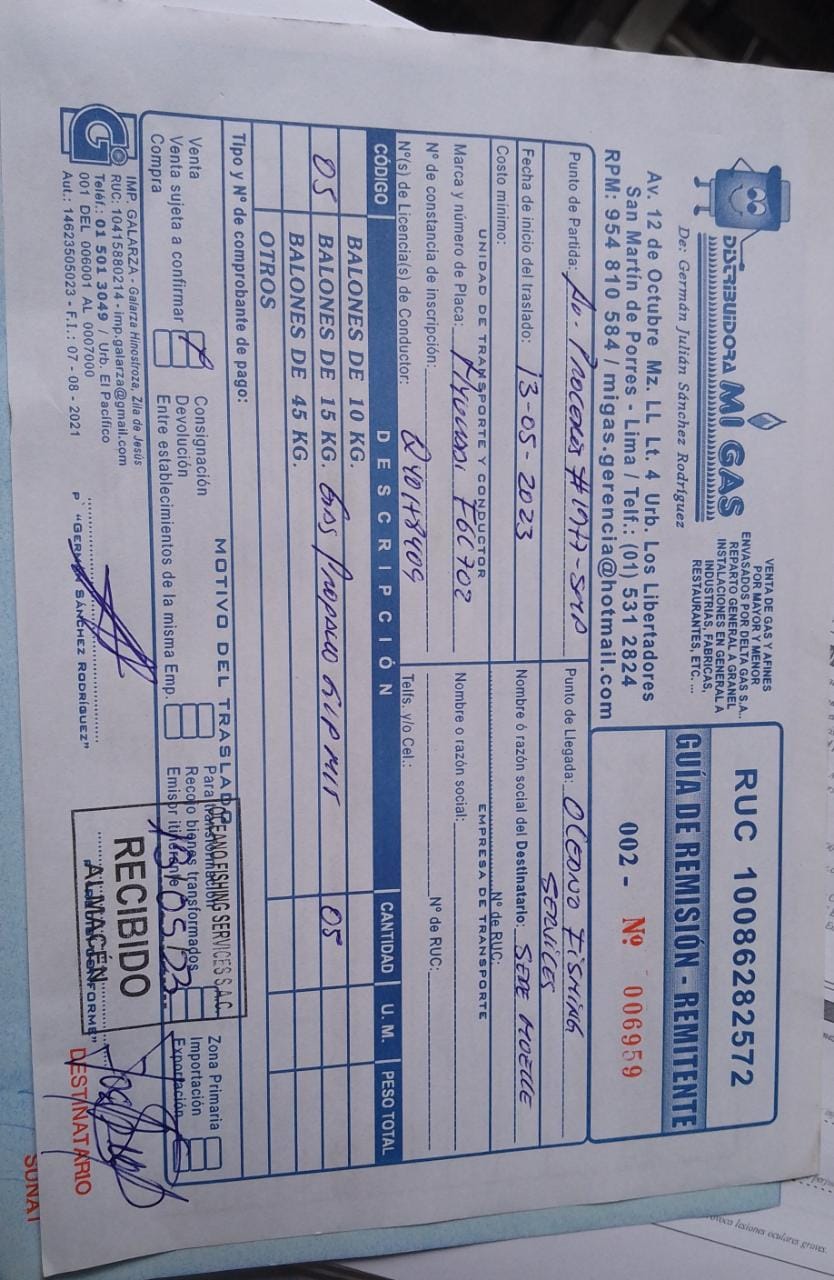 DISTRIBUIDORA MI GAS
De: Germán Julián Sánchez Rodríguez
VENTA DE GAS Y AFINES
POR MAYOR Y MENOR
ENVASADOS POR DELTA GAS S.A..
REPARTO GENERAL A GRANEL
INSTALACIONES EN GENERAL A
INDUSTRIAS, FABRICAS,
RESTAURANTES, ETC. ...
Av. 12 de Octubre Mz. LL Lt. 4 Urb. Los Libertadores
San Martín de Porres - Lima / Telf.: (01) 531 2824
RPM: 954 810 584 / migas.gerencia@hotmail.com
RUC 10086282572
GUÍA DE REMISIÓN - REMITENTE
002 - Nº 006959
Punto de Partida: Av. Proceres # 1977 - SMP
Punto de Llegada: OCEANO FISHING
SERVICES
Fecha de inicio del traslado: 13-05-2023
Costo mínimo:
Nombre ó razón social del Destinatario: SEDE MUELLE
Nº de RUC:
UNIDAD DE TRANSPORTE Y CONDUCTOR
EMPRESA DE TRANSPORTE
Marca y número de Placa: Hyundai F6C702
Nombre o razón social:
Nº de constancia de inscripción:
Nº de RUC:
Nº(s) de Licencia(s) de Conductor: Q40148409
Telfs. y/o Cel.:
CÓDIGO DESCRIPCIÓN CANTIDAD U. M. PESO TOTAL
BALONES DE 10 KG.
05 BALONES DE 15 KG. Gas Propano 05
BALONES DE 45 KG.
OTROS
Tipo y Nº de comprobante de pago:
MOTIVO DEL TRASLADO
Venta
Venta sujeta a confirmar
Compra
Consignación
Devolución
Entre establecimientos de la misma Emp.
Para transformación
Recojo bienes transformados
Emisor itinerante
Zona Primaria
Importación
Exportación
OCEANO FISHING SERVICES S.A.C.
13/05/23
RECIBIDO
ALMACÉN
IMP. GALARZA - Galarza Hinostroza, Zila de Jesús
RUC: 10415880214 - imp.galarza@gmail.com
Teléf.: 01 501 3049 / Urb. El Pacífico
001 DEL 006001 AL 0007000
Aut.: 14623505023 - F.I.: 07 - 08 - 2021
P' "GERMÁN SÁNCHEZ RODRÍGUEZ"
CONFORME"
DESTINATARIO
SUNAT